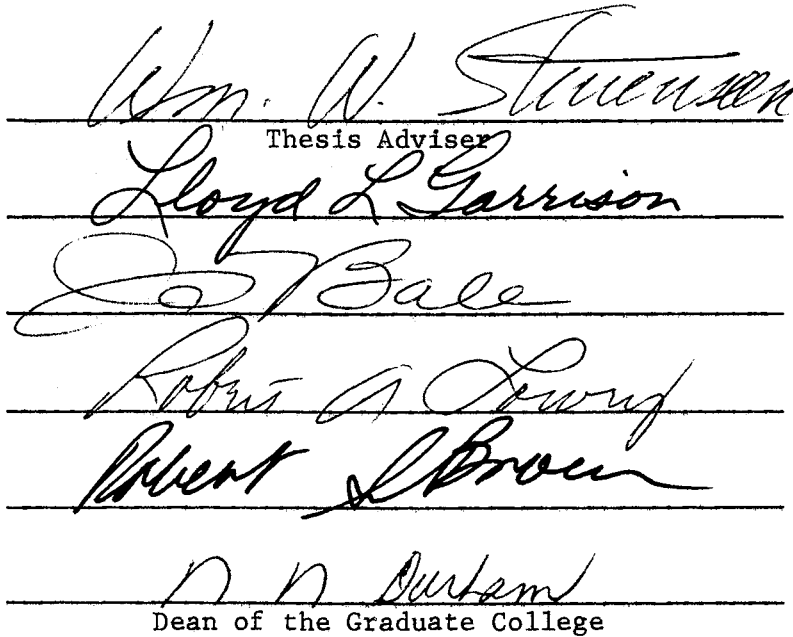 Wm. W. Stevenson
Thesis Adviser
Lloyd L Garrison
Bale
Robert A Lowry
Robert S Brown
n n Durham
Dean of the Graduate College